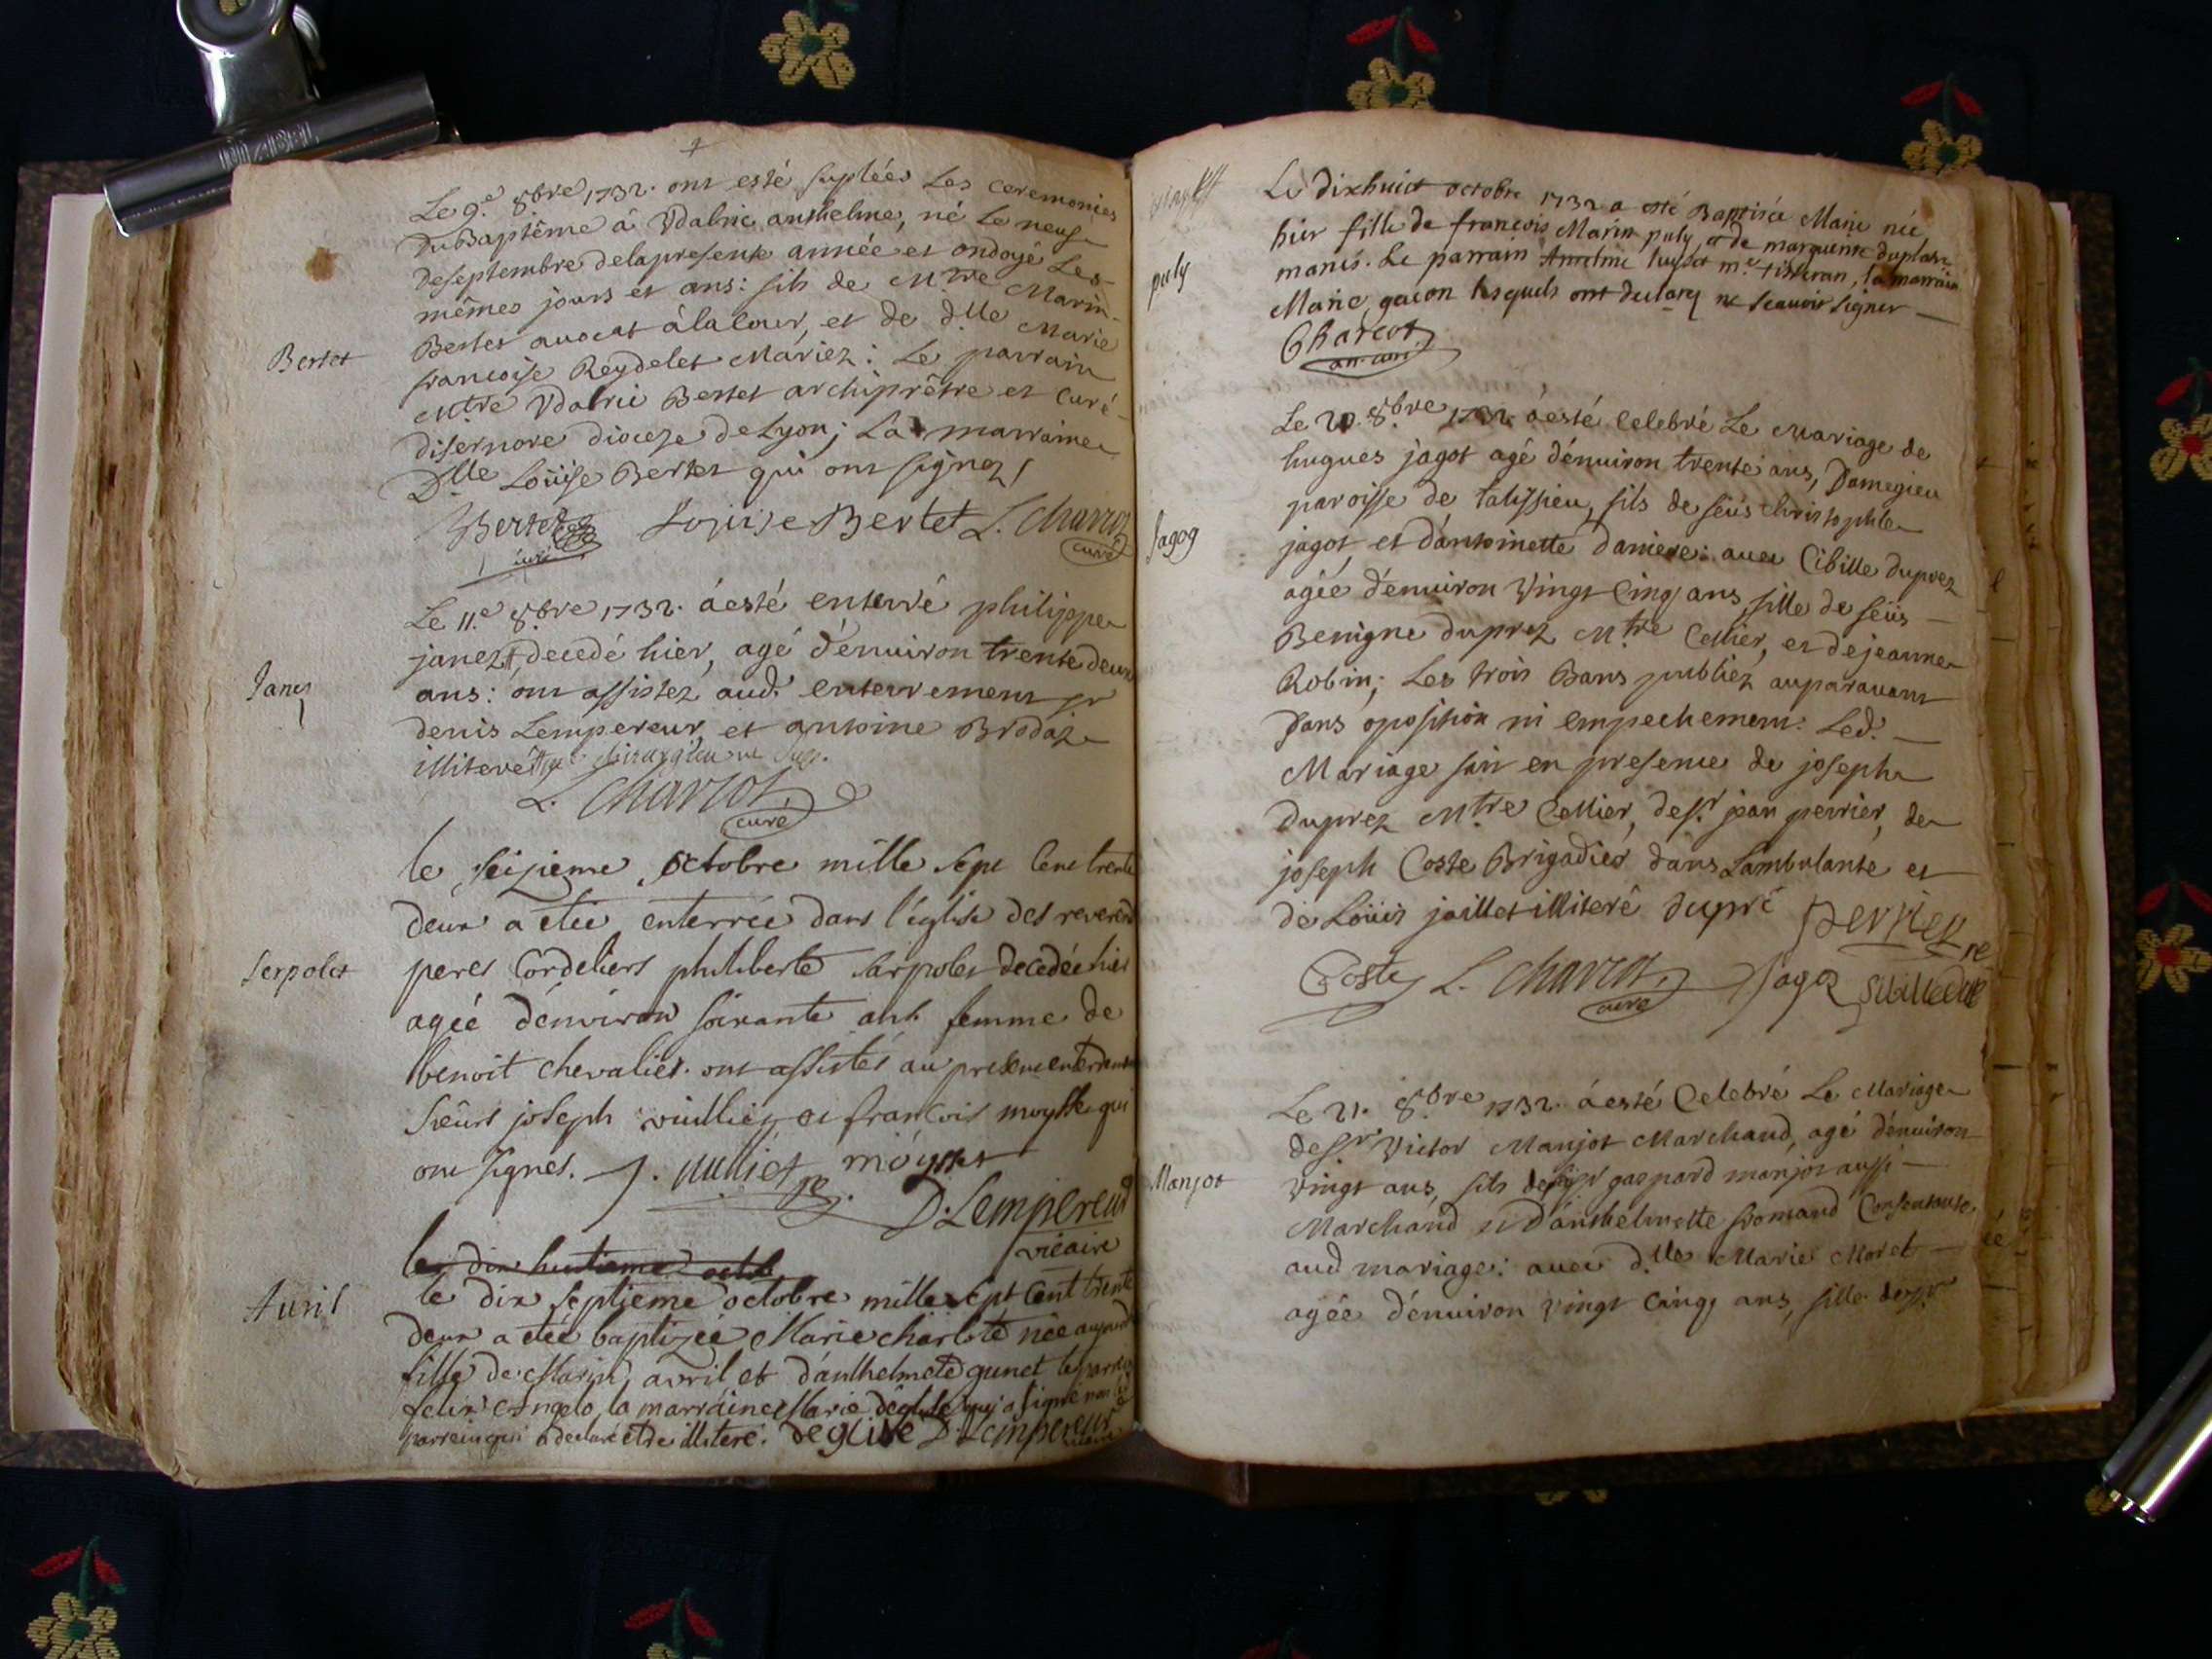 Le 9.e 8bre 1732. ont esté suplées Les ceremonies
Du Baptême á Vdalric anthelme, né Le neuf
De septembre de la presente année et ondoyé Les
mêmes jours et ans: fils de Mtre Marin
Bertet avocat á la Cour, et de dlle Marie
francoise Reydelet Mariez: Le parrain
Mtre Vdalric Bertet archiprêtre et Curé
disernore dioceze de Lyon; La marraine
Dlle Loüise Bertet qui ont signez
Bertet
Bertet Louise Bertet L. Charcot
curé curé
Le 11.e 8bre 1732. á esté enterré philippe
janez decedé hier, agé d'enuiron trente deux
Janez
ans: ont assistez aud. enterrement sr
denis Lempereur et antoine Brodaz
illiteré
L. Charcot
curé
le seizieme octobre mille sept Cent trente
deux a eteé enterrée dans l'église des reverend
Serpolet
peres Cordeliers philiberte serpolet decedée hier
ageé d'environ soixante ans femme de
benoit chevalier. ont assistés au present enterrement
sieurs joseph vuilliez et francois moysse qui
ont signes. J. vulliet moysse
D. Lempereur
vicaire
le dix huitieme octob
Auril
le dix septieme octobre mille sept Cent trente
deux a eteé baptizeé Marie charlote neé aujourd
fille de Marin avril et d'anthelmete gunet le parrain
felix Angelo, la marraine Marie déglise qui a signé non le
parrein qui a declaré etre illiteré. deglise D. Lempereur
Le dixhuict octobre 1732 a esté Baptisée Marie née
hier fille de francois Marin puly, et de marguerite duplatre
puly
mariés. Le parrain Anselme huyset m.e tisseran, la marraine
Marie gacon lesquels ont declaré ne scauoir signer
Charcot
Le 20. 8bre 1732. á esté Celebré Le Mariage de
hugues jagot agé d'enuiron trente ans, Damegieu
paroisse de talissieu, fils de feüs christophle
Jagog
jagot, et d'antoinette daniere: auec Cibille duprez
agée d'enuiron Vingt Cinq ans, fille de feüs
Benigne duprez Mtre Cellier, et de jeanne
Robin; Les trois Bans publiez auparauant
Sans oposition ni empechement: Led.
Mariage fait en presence de joseph
duprez Mtre Cellier, de sr. jean perrier, de
joseph Coste Brigadier dans Lambulante et
de Loüis jaillet illiteré dupré perrier
Coste L. Charcot Jagoz Sibille du
curé
Le 21. 8bre 1732. á esté Celebré Le Mariage
de sr Victor Manjot Marchand, agé d'enuiron
Manjot
Vingt ans, fils de sr gaspard manjot aussi
Marchand et d'anthelmette fromand Consentante
aud mariage: auec dlle Marie Moret
agée d'enuiron Vingt Cinq ans, fille de sr